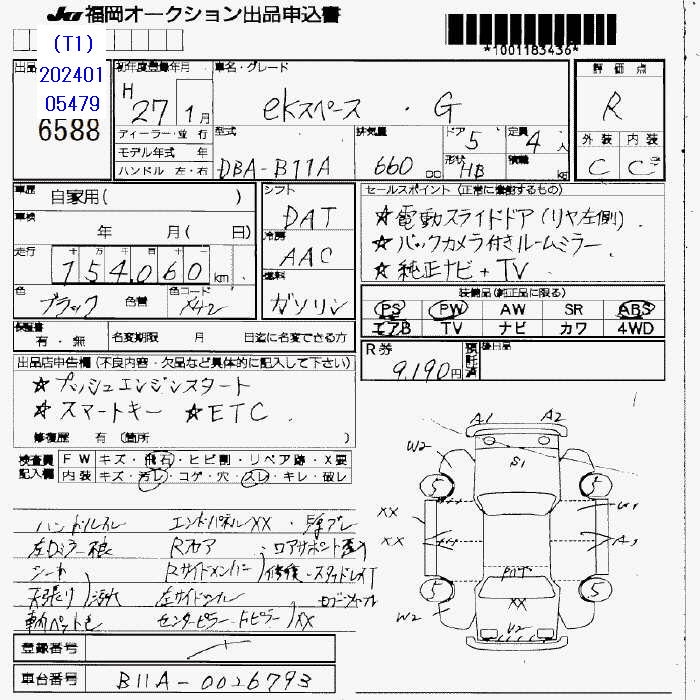 JU 福岡オークション出品申込書
*1001183436*
(T1)
202401
05479
6588
出品
初年度登録年月
H 27 1月
車名・グレード
ekスペース ・ G
評価点
R
外装 内装
C C
ディーラー・並行
モデル年式 年
ハンドル 左・右
型式
DBA-B11A
排気量
660 cc
ドア 5
形状 HB
定員 4人
積載 kg
車歴 自家用( )
車検 年 月( 日)
走行 154,060 km
色 ブラック 色替 色コード X42
シフト
DAT
冷房
AAC
燃料
ガソリン
セールスポイント (正常に機能するもの)
☆電動スライドドア(リヤ左側)
☆バックカメラ付きルームミラー
☆純正ナビ+TV
装備品(純正品に限る)
PS PW AW SR ABS
エアB TV ナビ カワ 4WD
保証書 有・無
名変期限 月 日迄に名変できる方
R券 9,190円
預託済
後日品
出品店申告欄 (不良内容・欠品など具体的に記入して下さい)
☆プッシュエンジンスタート
☆スマートキー ☆ETC
修復歴 有 (箇所 )
検査員記入欄
FW キズ・飛石・ヒビ割・リペア跡・X要
内装 キズ・汚レ・コゲ・穴・スレ・キレ・破レ
ハンドルスレ エンドパネルXX
左Dミラー Rフロア
シート Rサイドメンバー 修復
天張り 汚れ
センターピラー XX
A1 A2
W2
S1
5 5
XX XX
5 5
W2
XX
U2
登録番号
車台番号 B11A-0026793